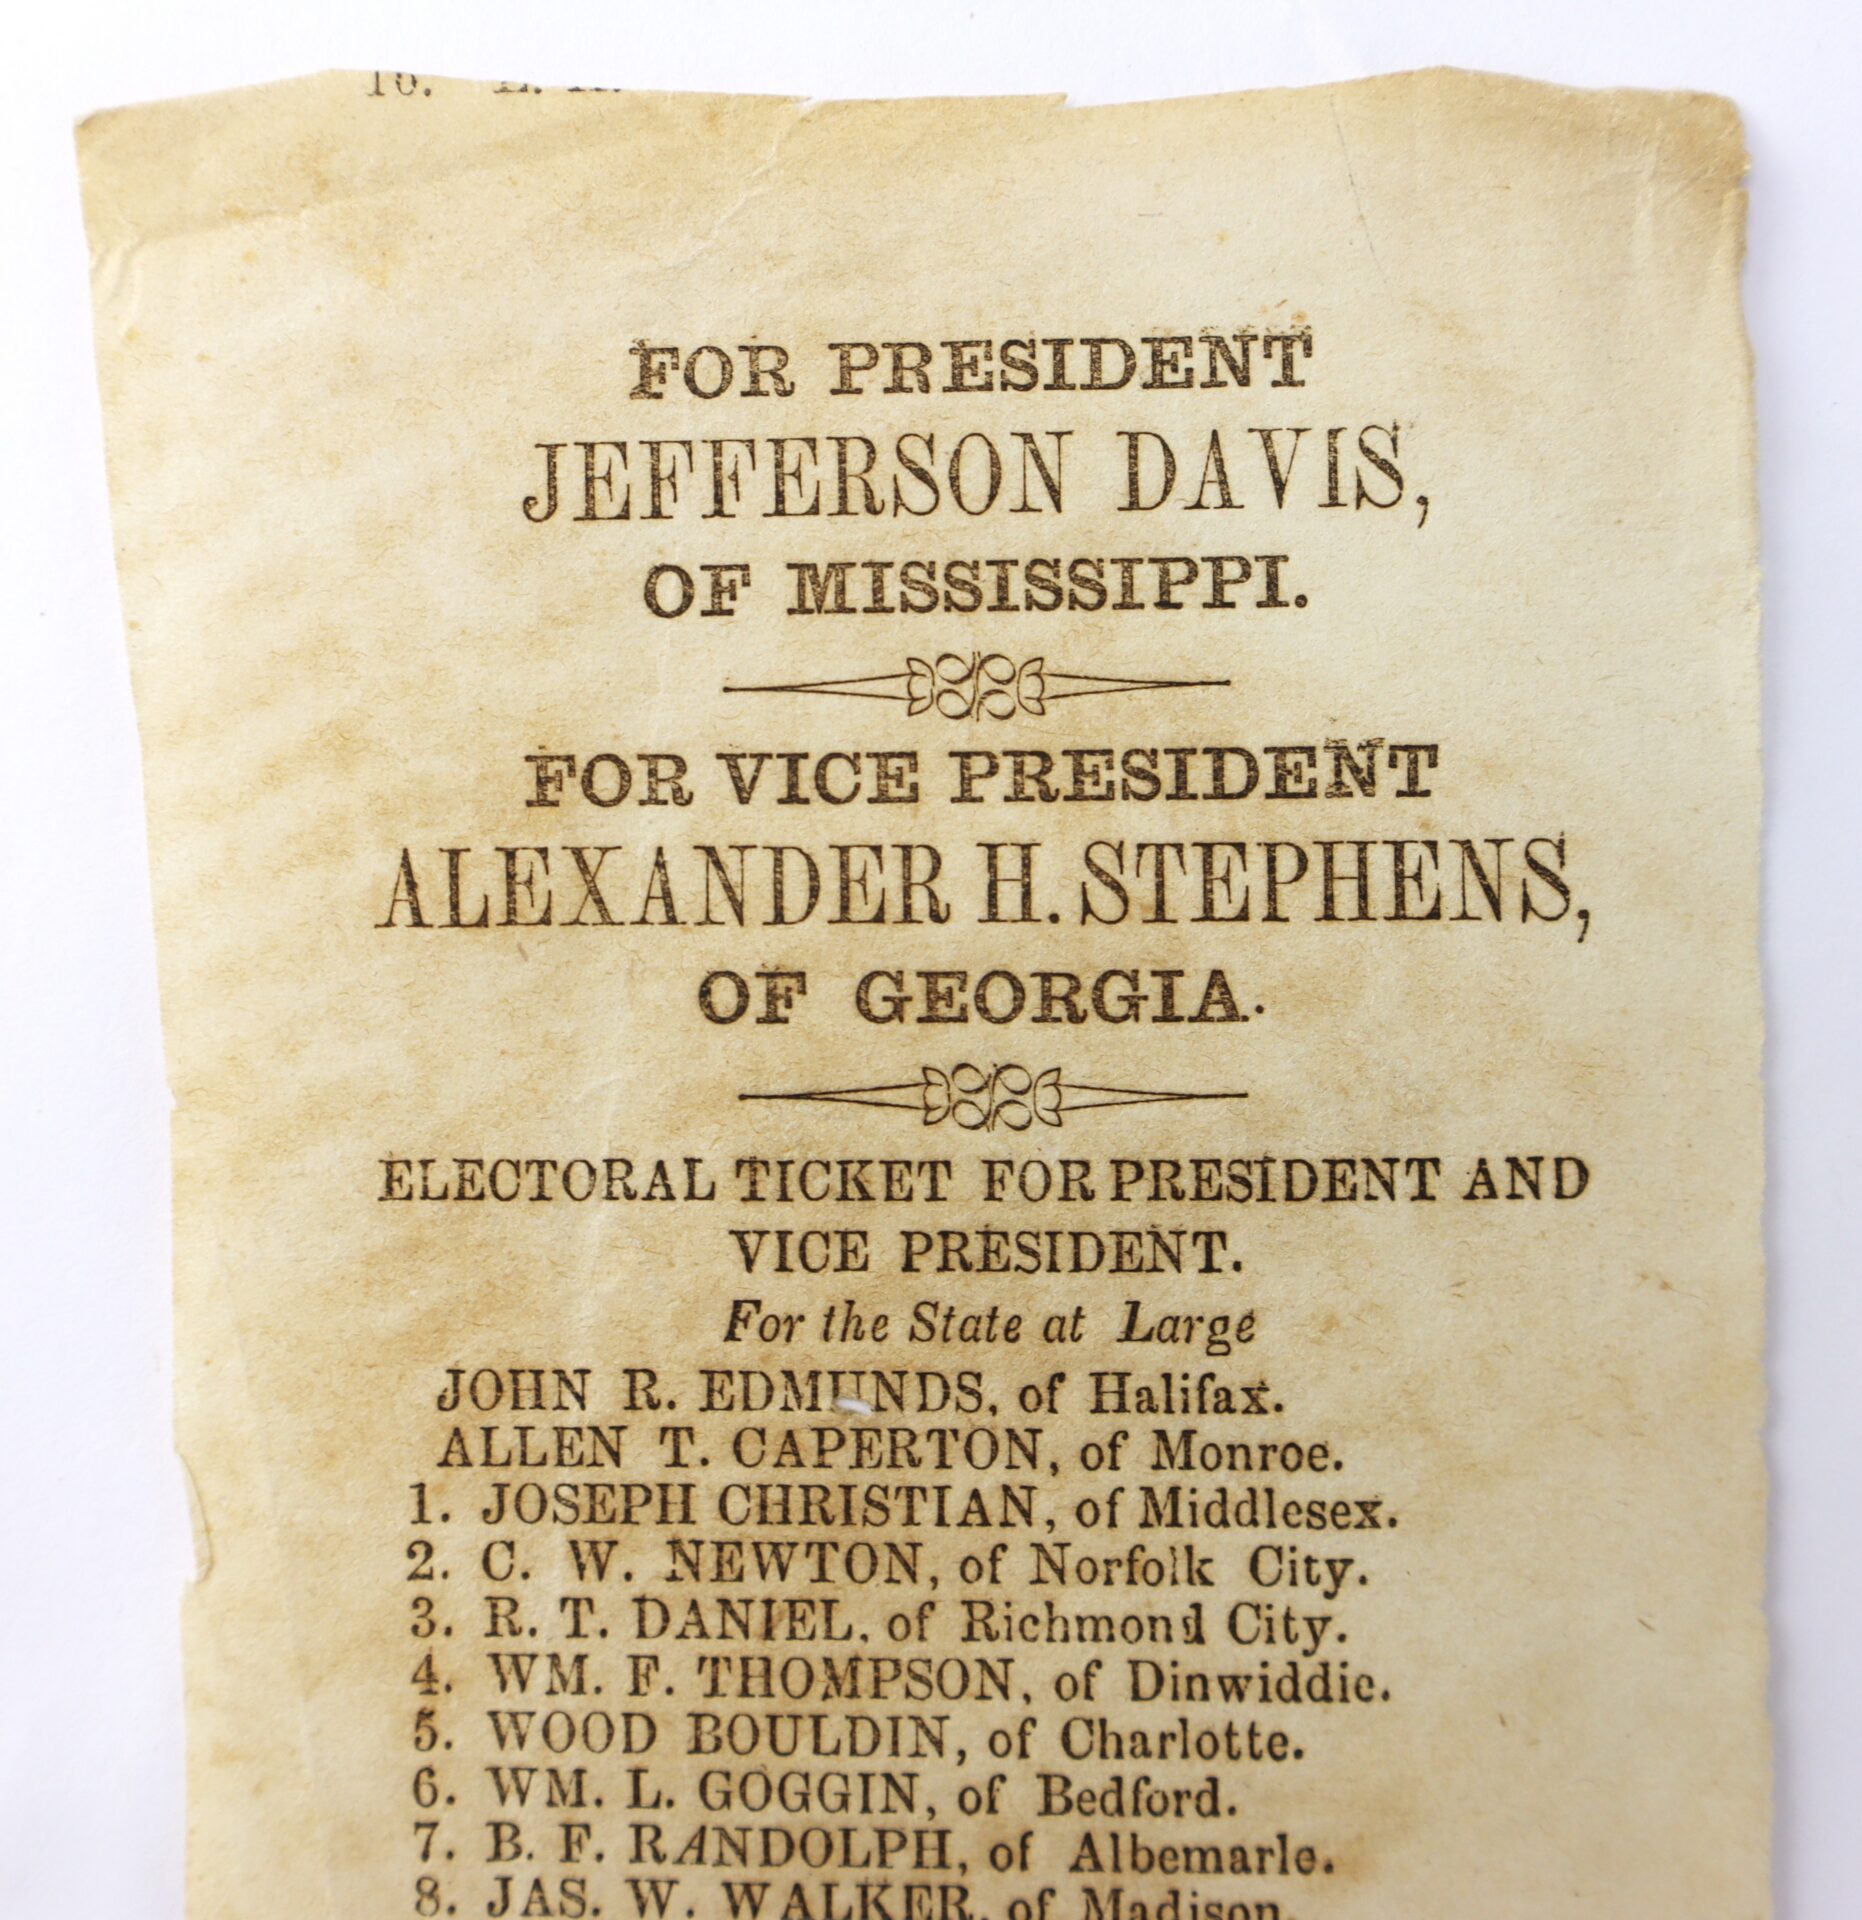 FOR PRESIDENT
JEFFERSON DAVIS,
OF MISSISSIPPI.
FOR VICE PRESIDENT
ALEXANDER H. STEPHENS,
OF GEORGIA.
ELECTORAL TICKET FOR PRESIDENT AND
VICE PRESIDENT.
For the State at Large
JOHN R. EDMUNDS, of Halifax.
ALLEN T. CAPERTON, of Monroe.
1. JOSEPH CHRISTIAN, of Middlesex.
2. C. W. NEWTON, of Norfolk City.
3. R. T. DANIEL, of Richmond City.
4. WM. F. THOMPSON, of Dinwiddie.
5. WOOD BOULDIN, of Charlotte.
6. WM. L. GOGGIN, of Bedford.
7. B. F. RANDOLPH, of Albemarle.
8. JAS. W. WALKER, of Madison.